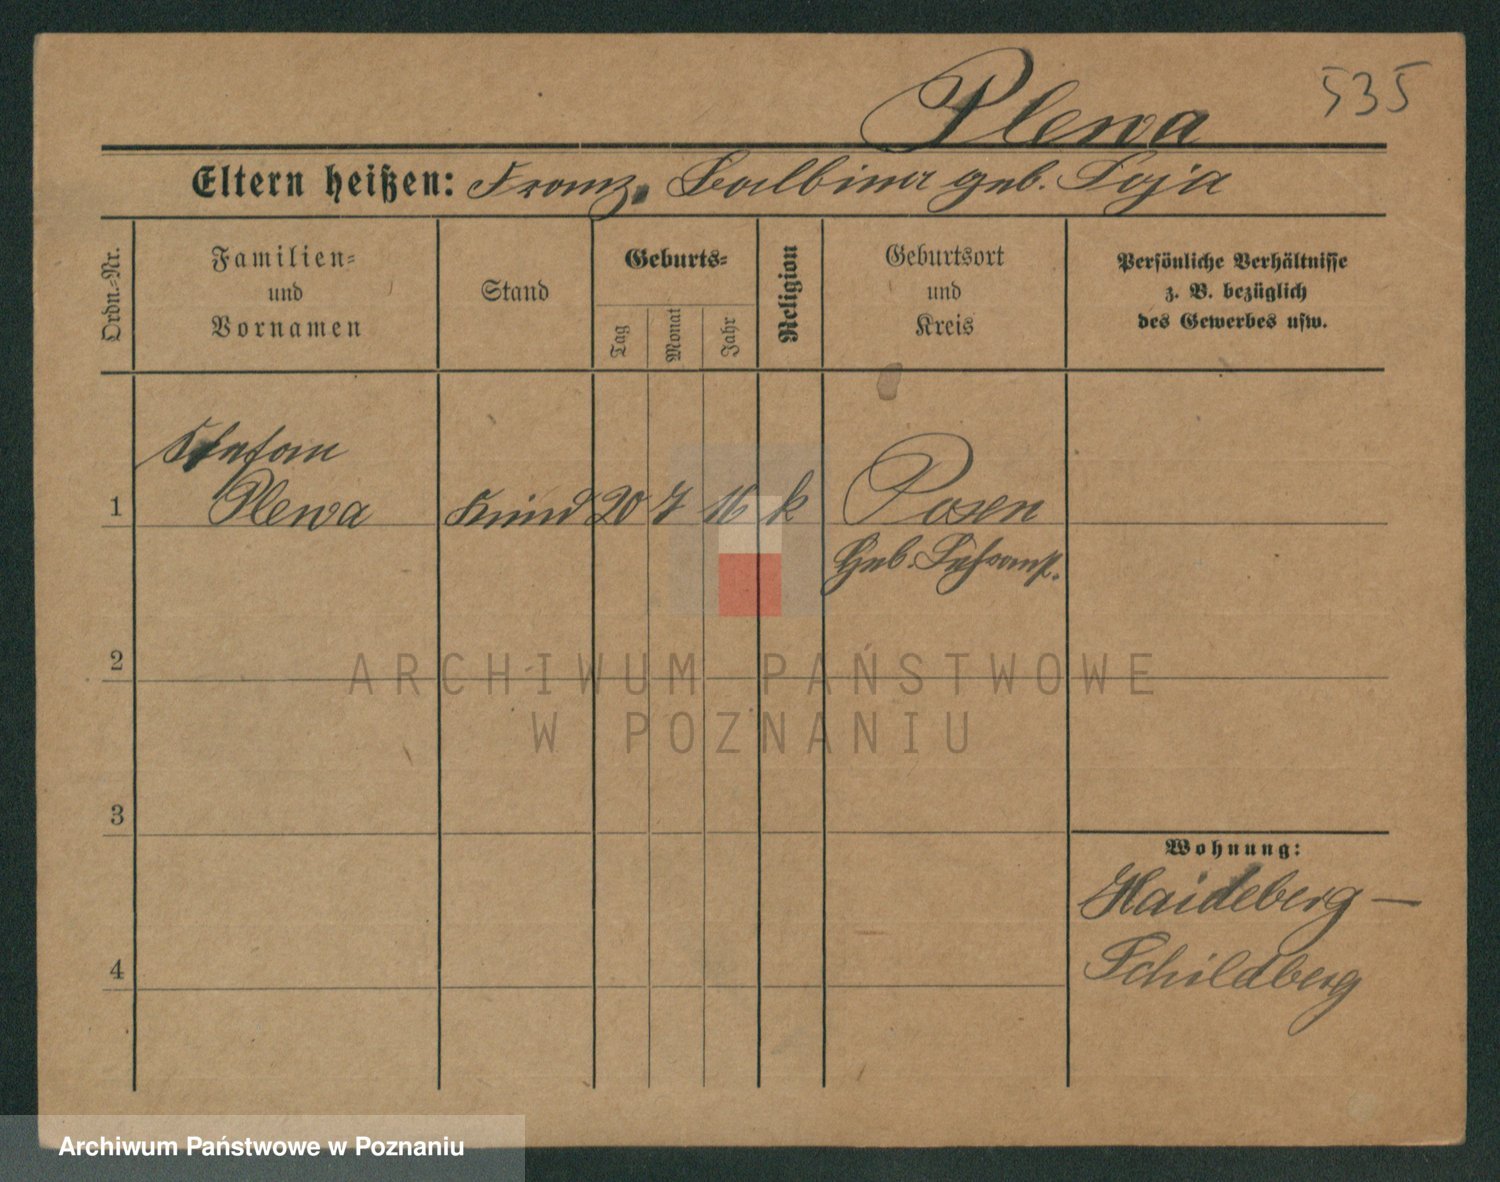 535
Plewa
Eltern heißen: Franz, Balbina geb. Soja
Ordn.-Nr.
Familien-
und
Vornamen
Stand
Geburts-
Tag
Monat
Jahr
Religion
Geburtsort
und
Kreis
Persönliche Verhältnisse
z. B. bezüglich
des Gewerbes usw.
Stefan
1 Plewa Kind 20 7 16 k Posen
Heb. Lehranst.
2
ARCHIWUM PAŃSTWOWE
W POZNANIU
3
Wohnung:
Haideberg –
4 Schildberg
Archiwum Państwowe w Poznaniu